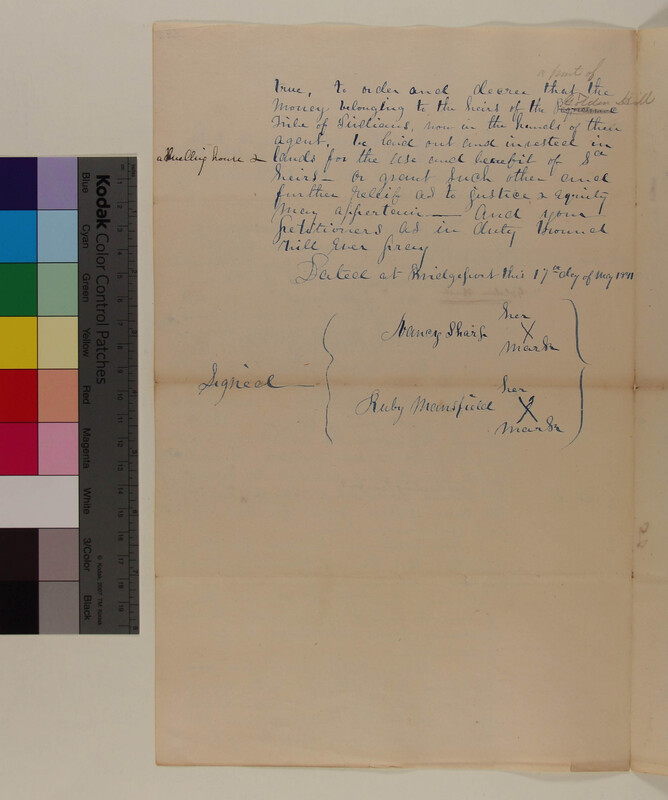 a part of
true, to order and decree that the
Golden Hill
money belonging to the heirs of the
Tribe of Indians, now in the hands of their
agent, be laid out and invested in
a Dwelling house &
lands for the use and benefit of Sd
heirs — or grant such other and
further relief as to justice & equity
may appertain — And your
petitioners as in duty bound
will ever pray
Dated at Bridgeport this 17th day of May
her
Nancy Sharp X
mark
Signed
her
Ruby Mansfield X
mark
Kodak Color Control Patches
Blue
Cyan
Green
Yellow
Red
Magenta
White
3/Color
Black
© Kodak, 2007 TM: Kodak